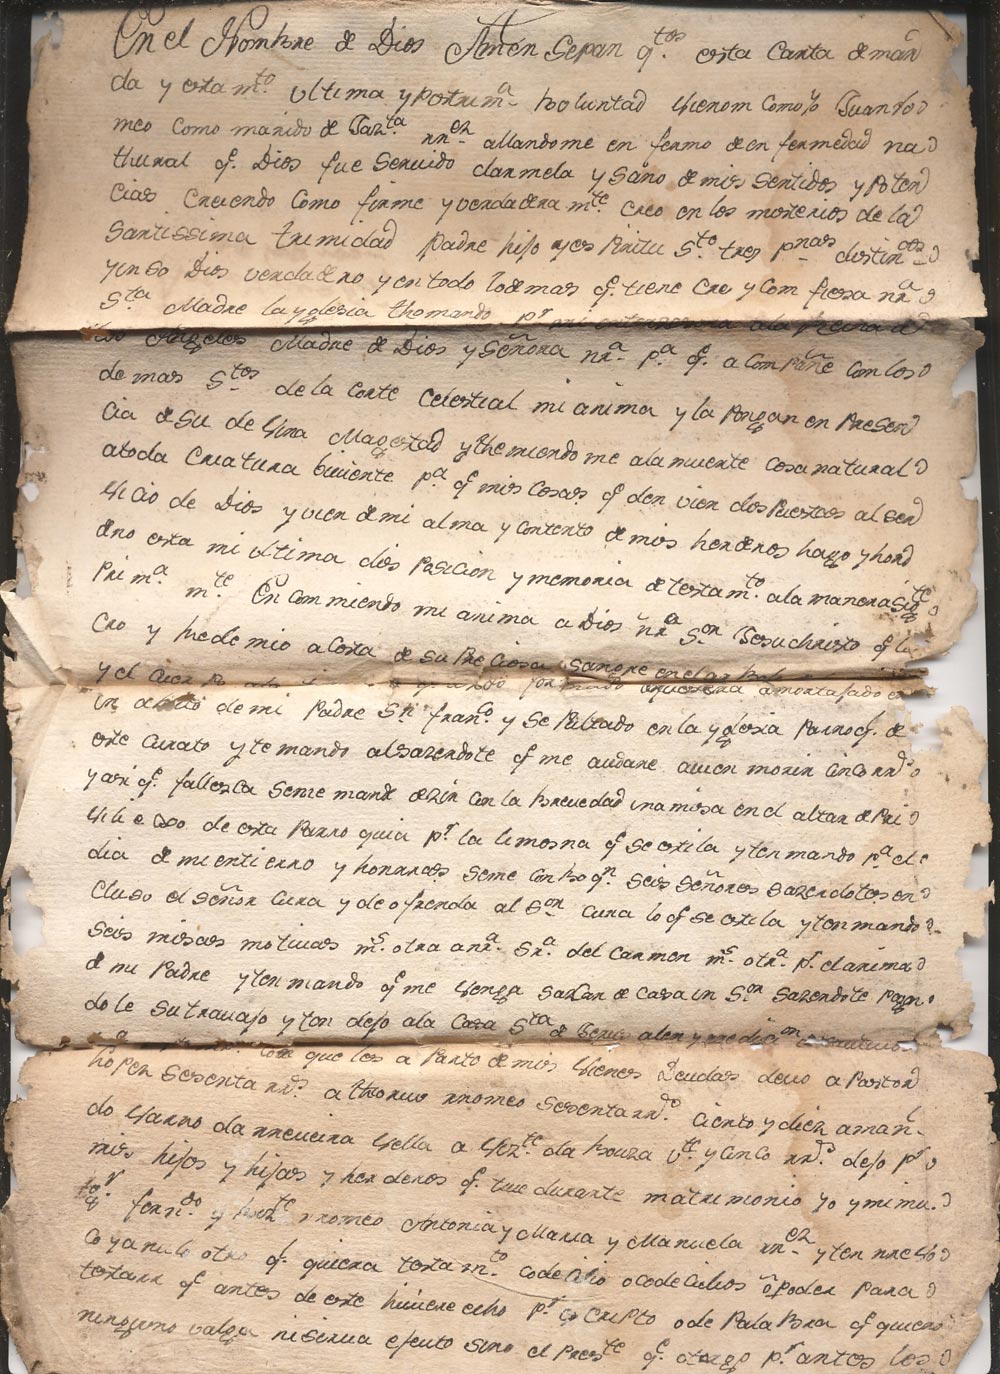 En el Nombre de Dios Amen Sepan q.tos esta Carta de man
da y esta m.to ultima y Postrim.a boluntad vienem Como yo Juan Ro
meo como marido de rr.ez allandome en fermo de en fermedad na
thural q.e Dios fue Servido darmela y Sano de mis Sentidos y Poten
cias Creiendo como firme y verdadera m.te creo en los misterios de la
Santissima trinidad Padre hijo y es Piritu S.to tres P.nas distin.tas
y un So Dios verdadero y en todo lo demas q.e tiene Cre y Com fiesa nr.a
S.ta Madre la yglesia thomando p.r mi intersesora a la Reina de
los Angeles Madre de Dios y Señora nr.a p.a q.e a Compañe Com los
demas S.tos de la Corte Celestial mi anima y la Pongan en Presen
cia de Su de Vina Magestad y themiendo me a la muerte Cosa natural
a toda Criatura biviente p.a q.e mis Cosas q.e den vien dis Puestas al Ser
Vicio de Dios y vien de mi alma y Contento de mis herderos hago y hord
deno esta mi ultima dis Posicion y memoria de testa m.to a la manera sig.te
Prim.a m.te En Com miendo mi anima a Dios nr.a S.or Jesuchristo q.e la
Cro y Redemio a Costa de Su Preciosa Sangre en el
y el amortajado en
un abito de mi Padre S.n fran.co y Se Pultado en la yglesia Parroq.l de
este Curato yte mando al Sazerdote q.e me audare a vien morir Cinco rr.s
y asi q.e fallesca Seme mande dezir Con la brevedad una misa en el altar de Pri
Vilie de esta Parro quia p.r la limosna q.e se estila yten mando p.a el
dia de mi entierro y honrras Seme Con bo q.n Seis Señores Sazerdotes en
Cluso el Señor Cura y de ofrenda al S.or Cura lo q.e se estila yten mando
Seis misas motivas m.s otra a nr.a Sr.a del Carmen m.s otr.a p.r el anima
de mi Padre yten mando q.e me Venga Sacar de Casa un S.or Sazerdote Pagan
dole Su travajo yten dejo a la Casa S.ta de
que los a Parto de mis Vienes Deudas devo a Pastor
Sesenta rr.s a rromeo Sesenta rr.s Ciento y diez a man
do Vella a de Souza V.te y Cinco rr.s dejo p.r
mis hijos y hijas y herderos q.e tuve durante matrimonio yo y mi mu
g.r fern.do y rromeo Antonia y Maria y Manuela rr.ez yten rrebo
Co y anulo otro q.l quiera testa m.to Codecilio o codecilios o Poder Para
testarr q.e antes de este huviere echo p.r es Cripto o de Pala Bra q.e quiero
ninguno valga ni Sirva efeuto Sino el Pres.te q.e otorgo p.r antes los